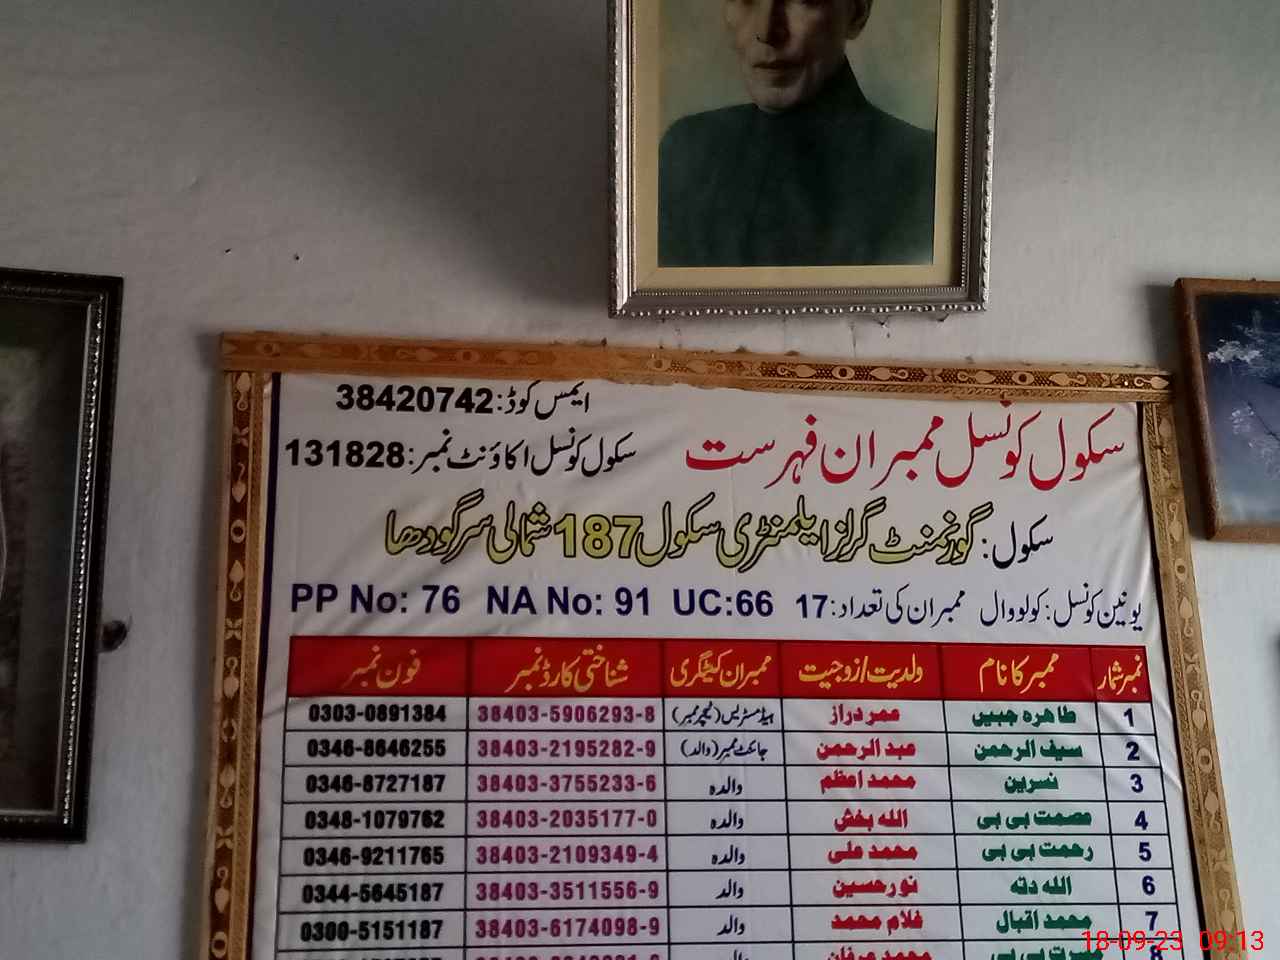 ایمس کوڈ: 38420742
سکول کونسل ممبران فہرست
سکول کونسل اکاؤنٹ نمبر: 131828
سکول: گورنمنٹ گرلز ایلیمنٹری سکول 187 شمالی سرگودھا
یونین کونسل: کولووال ممبران کی تعداد: 17 UC:66 NA No: 91 PP No: 76
نمبر شمار ممبر کا نام ولدیت/زوجیت ممبران کیٹگری شناختی کارڈ نمبر فون نمبر
1 طاہرہ جبیں عمر دراز ہیڈ مسٹریس (ٹیچر ممبر) 38403-5906293-8 0303-0891384
2 سیف الرحمن عبد الرحمن جائنٹ ممبر (والد) 38403-2195282-9 0346-8646255
3 نسرین محمد اعظم والدہ 38403-3755233-6 0346-8727187
4 عصمت بی بی اللہ بخش والدہ 38403-2035177-0 0348-1079762
5 رحمت بی بی محمد علی والدہ 38403-2109349-4 0346-9211765
6 اللہ دتہ نور حسین والد 38403-3511556-9 0344-5645187
7 محمد اقبال غلام محمد والد 38403-6174098-9 0300-5151187
8 بی بی محمد عرفان والد
18-09-23 09:13